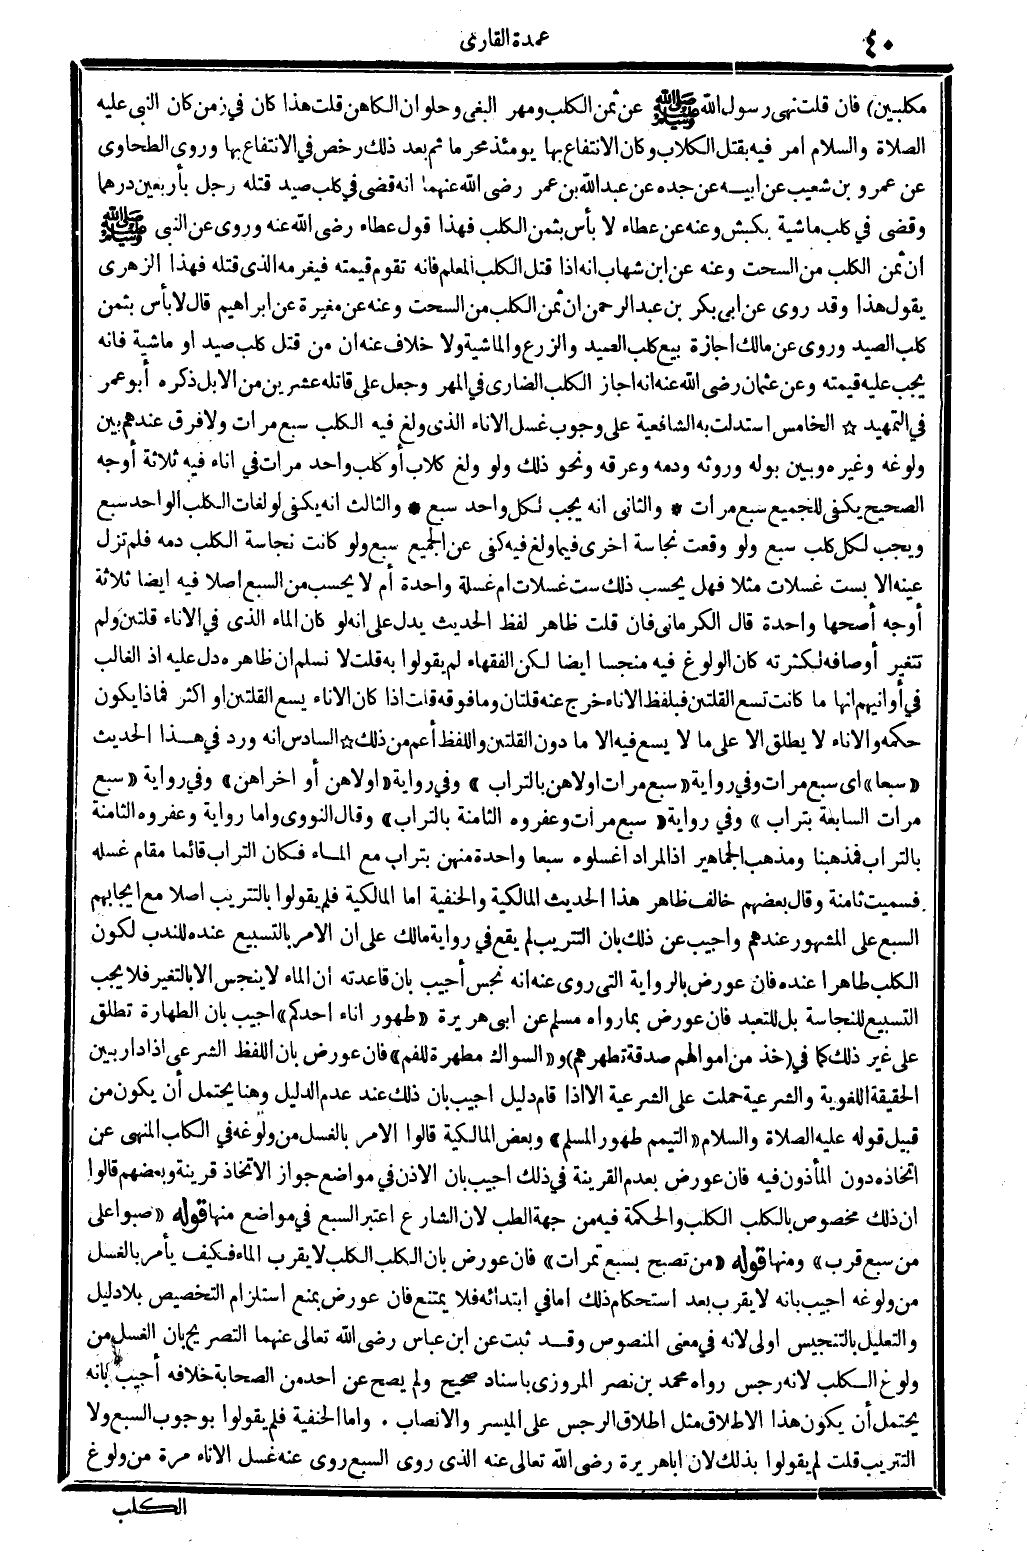 ٤٠
عمدة القارى
مكلبين) فان قلت نهى رسول الله ﷺ عن ثمن الكلب ومهر البغى وحلوان الكاهن قلت هذا كان في زمن كان النبى عليه
الصلاة والسلام امر فيه بقتل الكلاب وكان الانتفاع بها يومئذ محرما ثم بعد ذلك رخص في الانتفاع بها وروى الطحاوى
عن عمرو بن شعيب عن ابيه عن جده عن عبدالله بن عمر رضى الله عنهما انه قضى في كلب صيد قتله رجل بأربعين درهما
وقضى في كلب ماشية بكبش وعنه عن عطاء لا بأس بثمن الكلب فهذا قول عطاء رضى الله عنه وروى عن النبى ﷺ
ان ثمن الكلب من السحت وعنه عن ابن شهاب انه اذا قتل الكلب المعلم فانه تقوم قيمته فيغرمه الذى قتله فهذا الزهرى
يقول هذا وقد روى عن ابى بكر بن عبد الرحمن ان ثمن الكلب من السحت وعنه عن مغيرة عن ابراهيم قال لابأس بثمن
كلب الصيد وروى عن مالك اجازة بيع كلب الصيد والزرع والماشية ولا خلاف عنه ان من قتل كلب صيد او ماشية فانه
يجب عليه قيمته وعن عثمان رضى الله عنه انه اجاز الكلب الضارى في المهر وجعل على قاتله عشرين من الابل ذكره أبو عمر
في التمهيد ☆ الخامس استدلت به الشافعية على وجوب غسل الاناء الذى ولغ فيه الكلب سبع مرات ولافرق عندهم بين
ولوغه وغيره وبين بوله وروثه ودمه وعرقه ونحو ذلك ولو ولغ كلاب أو كلب واحد مرات في اناء فيه ثلاثة أوجه
الصحيح يكفى للجميع سبع مرات * والثانى انه يجب لكل واحد سبع * والثالث انه يكفى لولغات الكلب الواحد سبع
ويجب لكل كلب سبع ولو وقعت نجاسة اخرى فيما ولغ فيه كفى عن الجميع سبع ولو كانت نجاسة الكلب دمه فلم تزل
عينه الا بست غسلات مثلا فهل يحسب ذلك ست غسلات ام غسلة واحدة أم لا يحسب من السبع اصلا فيه ايضا ثلاثة
أوجه أصحها واحدة قال الكرمانى فان قلت ظاهر لفظ الحديث يدل على انه لو كان الماء الذى في الاناء قلتين ولم
تتغير أوصافه لكثرته كان الولوغ فيه منجسا ايضا لكن الفقهاء لم يقولوا به قلت لا نسلم ان ظاهره دل عليه اذ الغالب
في أوانيهم انها ما كانت تسع القلتين فبلفظ الاناء خرج عنه قلتان ومافوقه قلت اذا كان الاناء يسع القلتين او اكثر فماذا يكون
حكمه والاناء لا يطلق الا على ما لا يسع فيه الا ما دون القلتين واللفظ أعم من ذلك ☆ السادس انه ورد في هذا الحديث
«سبعا» اى سبع مرات وفي رواية «سبع مرات اولاهن بالتراب» وفي رواية «اولاهن أو اخراهن» وفي رواية «سبع
مرات السابعة بتراب» وفي رواية «سبع مرات وعفروه الثامنة بالتراب» وقال النووى واما رواية وعفروه الثامنة
بالتراب فمذهبنا ومذهب الجماهير اذ المراد اغسلوه سبعا واحدة منهن بتراب مع الماء فكان التراب قائما مقام غسله
فسميت ثامنة وقال بعضهم خالف ظاهر هذا الحديث المالكية والحنفية اما المالكية فلم يقولوا بالتتريب اصلا مع ايجابهم
السبع على المشهور عندهم واجيب عن ذلك بان التتريب لم يقع في رواية مالك على ان الامر بالتسبيع عنده للندب لكون
الكلب طاهرا عنده فان عورض بالرواية التى روى عنه انه نجس أجيب بان قاعدته ان الماء لا ينجس الا بالتغير فلا يجب
التسبيع للنجاسة بل للتعبد فان عورض بما رواه مسلم عن ابى هريرة «طهور اناء احدكم» اجيب بان الطهارة تطلق
على غير ذلك كما في (خذ من اموالهم صدقة تطهرهم) و«السواك مطهرة للفم» فان عورض بان اللفظ الشرعى اذا دار بين
الحقيقة اللغوية والشرعية حملت على الشرعية الا اذا قام دليل اجيب بان ذلك عند عدم الدليل وهنا يحتمل أن يكون من
قبيل قوله عليه الصلاة والسلام «التيمم طهور المسلم» وبعض المالكية قالوا الامر بالغسل من ولوغه في الكاب المنهى عن
اتخاذه دون المأذون فيه فان عورض بعدم القرينة في ذلك اجيب بان الاذن في مواضع جواز الاتخاذ قرينة وبعضهم قالوا
ان ذلك مخصوص بالكلب الكلب والحكمة فيه من جهة الطب لان الشارع اعتبر السبع في مواضع منها قوله «صبوا على
من سبع قرب» ومنها قوله «من تصبح بسبع تمرات» فان عورض بان الكلب الكلب لا يقرب الماء فكيف يأمر بالغسل
من ولوغه اجيب بانه لا يقرب بعد استحكام ذلك اما في ابتدائه فلا يمتنع فان عورض بمنع استلزام التخصيص بلا دليل
والتعليل بالتنجيس اولى لانه في معنى المنصوص وقد ثبت عن ابن عباس رضى الله تعالى عنهما التصريح بان الغسل من
ولوغ الكلب لانه رجس رواه محمد بن نصر المروزى باسناد صحيح ولم يصح عن احد من الصحابة خلافه أجيب بانه
يحتمل أن يكون هذا الاطلاق مثل اطلاق الرجس على الميسر والانصاب . واما الحنفية فلم يقولوا بوجوب السبع ولا
التتريب قلت لم يقولوا بذلك لان اباهريرة رضى الله تعالى عنه الذى روى السبع روى عنه غسل الاناء مرة من ولوغ
الكلب